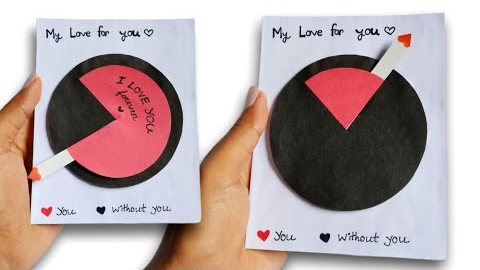 My Love for you ♡
I LOVE YOU
forever
You
Without you
My Love for you ♡
You
Without you